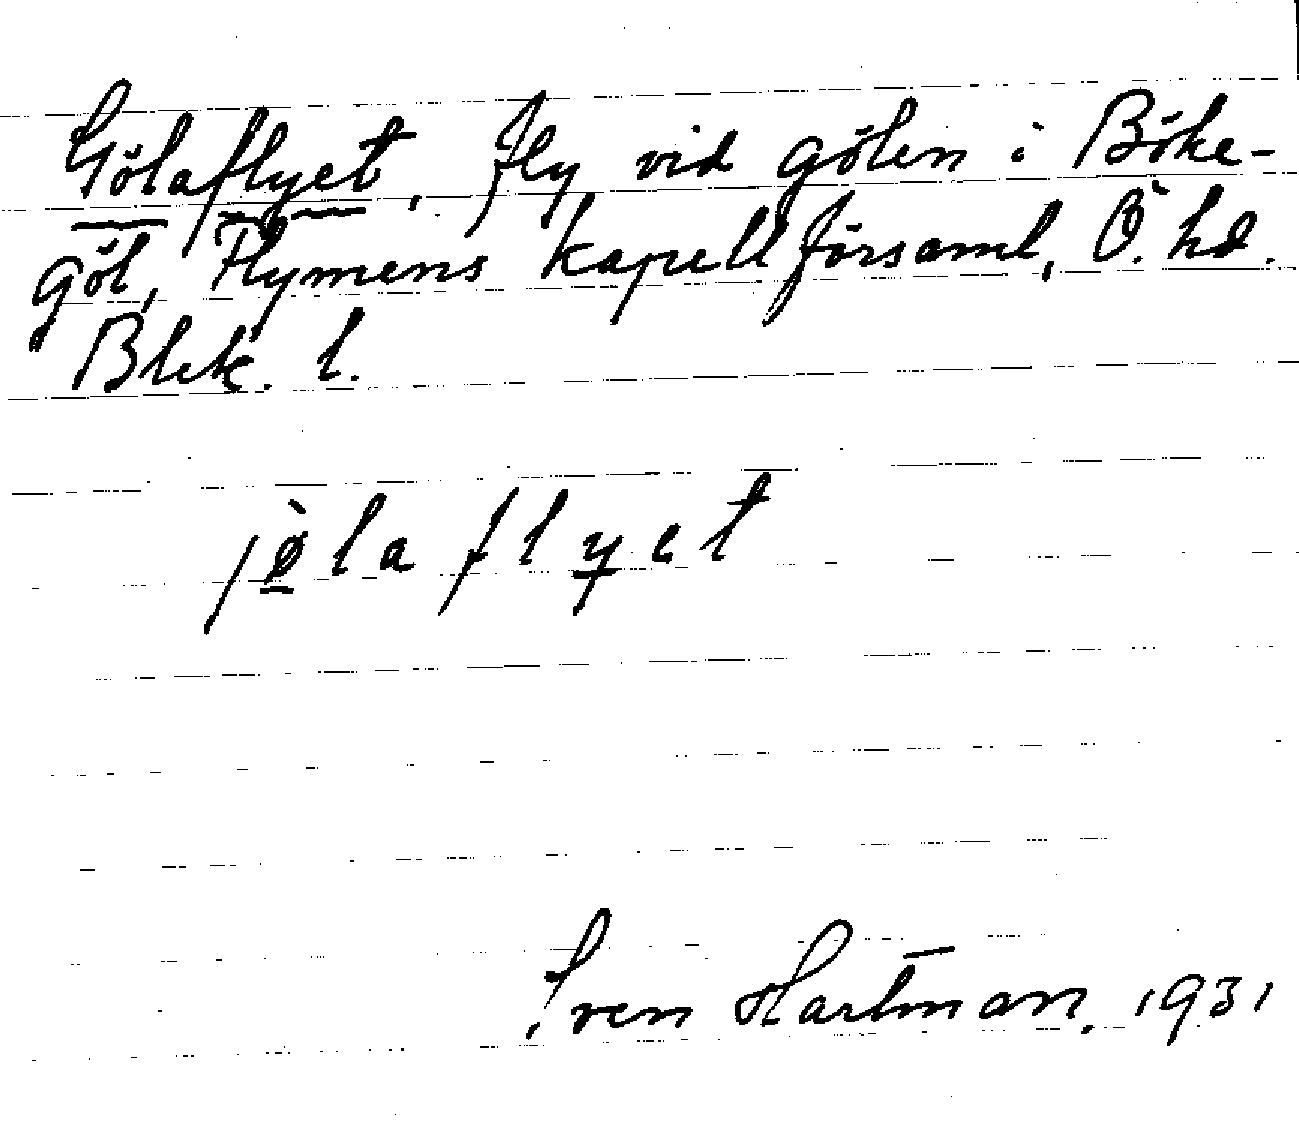 Gölaflyet, fly vid gölen i Böke-
göl, Flymens kapellförsaml, Ö. hd.
Blek. l.
jø̀laflyet
Sven Hartman, 1931